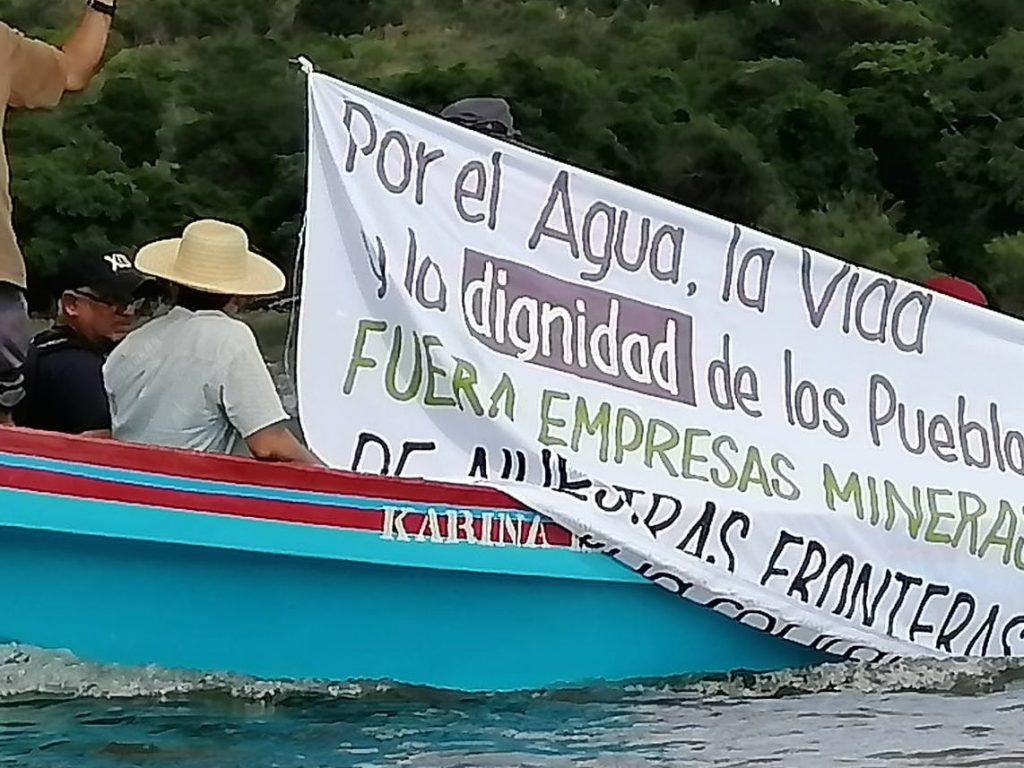 Por el Agua, la Vida
y la dignidad de los Pueblo
FUERA EMPRESAS MINERAS
DE NUESTRAS FRONTERAS
KARINA